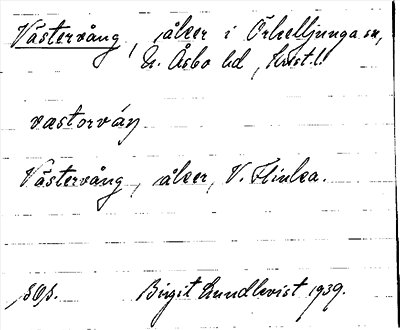 Västervång, åker i Örkelljunga sn,
N. Åsbo hd, Krist. l.
västorvåŋ
Västervång, åker, V. Flinka.
Birgit Lundkvist 1939.